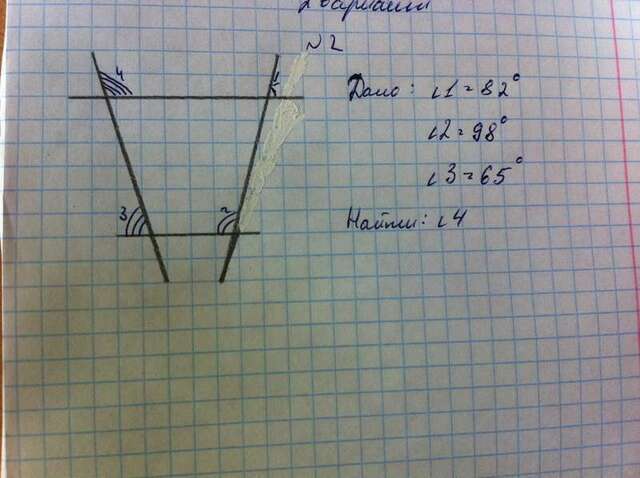 2 вариант
№2
4 1
Дано: ∠1=82°
∠2=98°
3 2
∠3=65°
Найти: ∠4